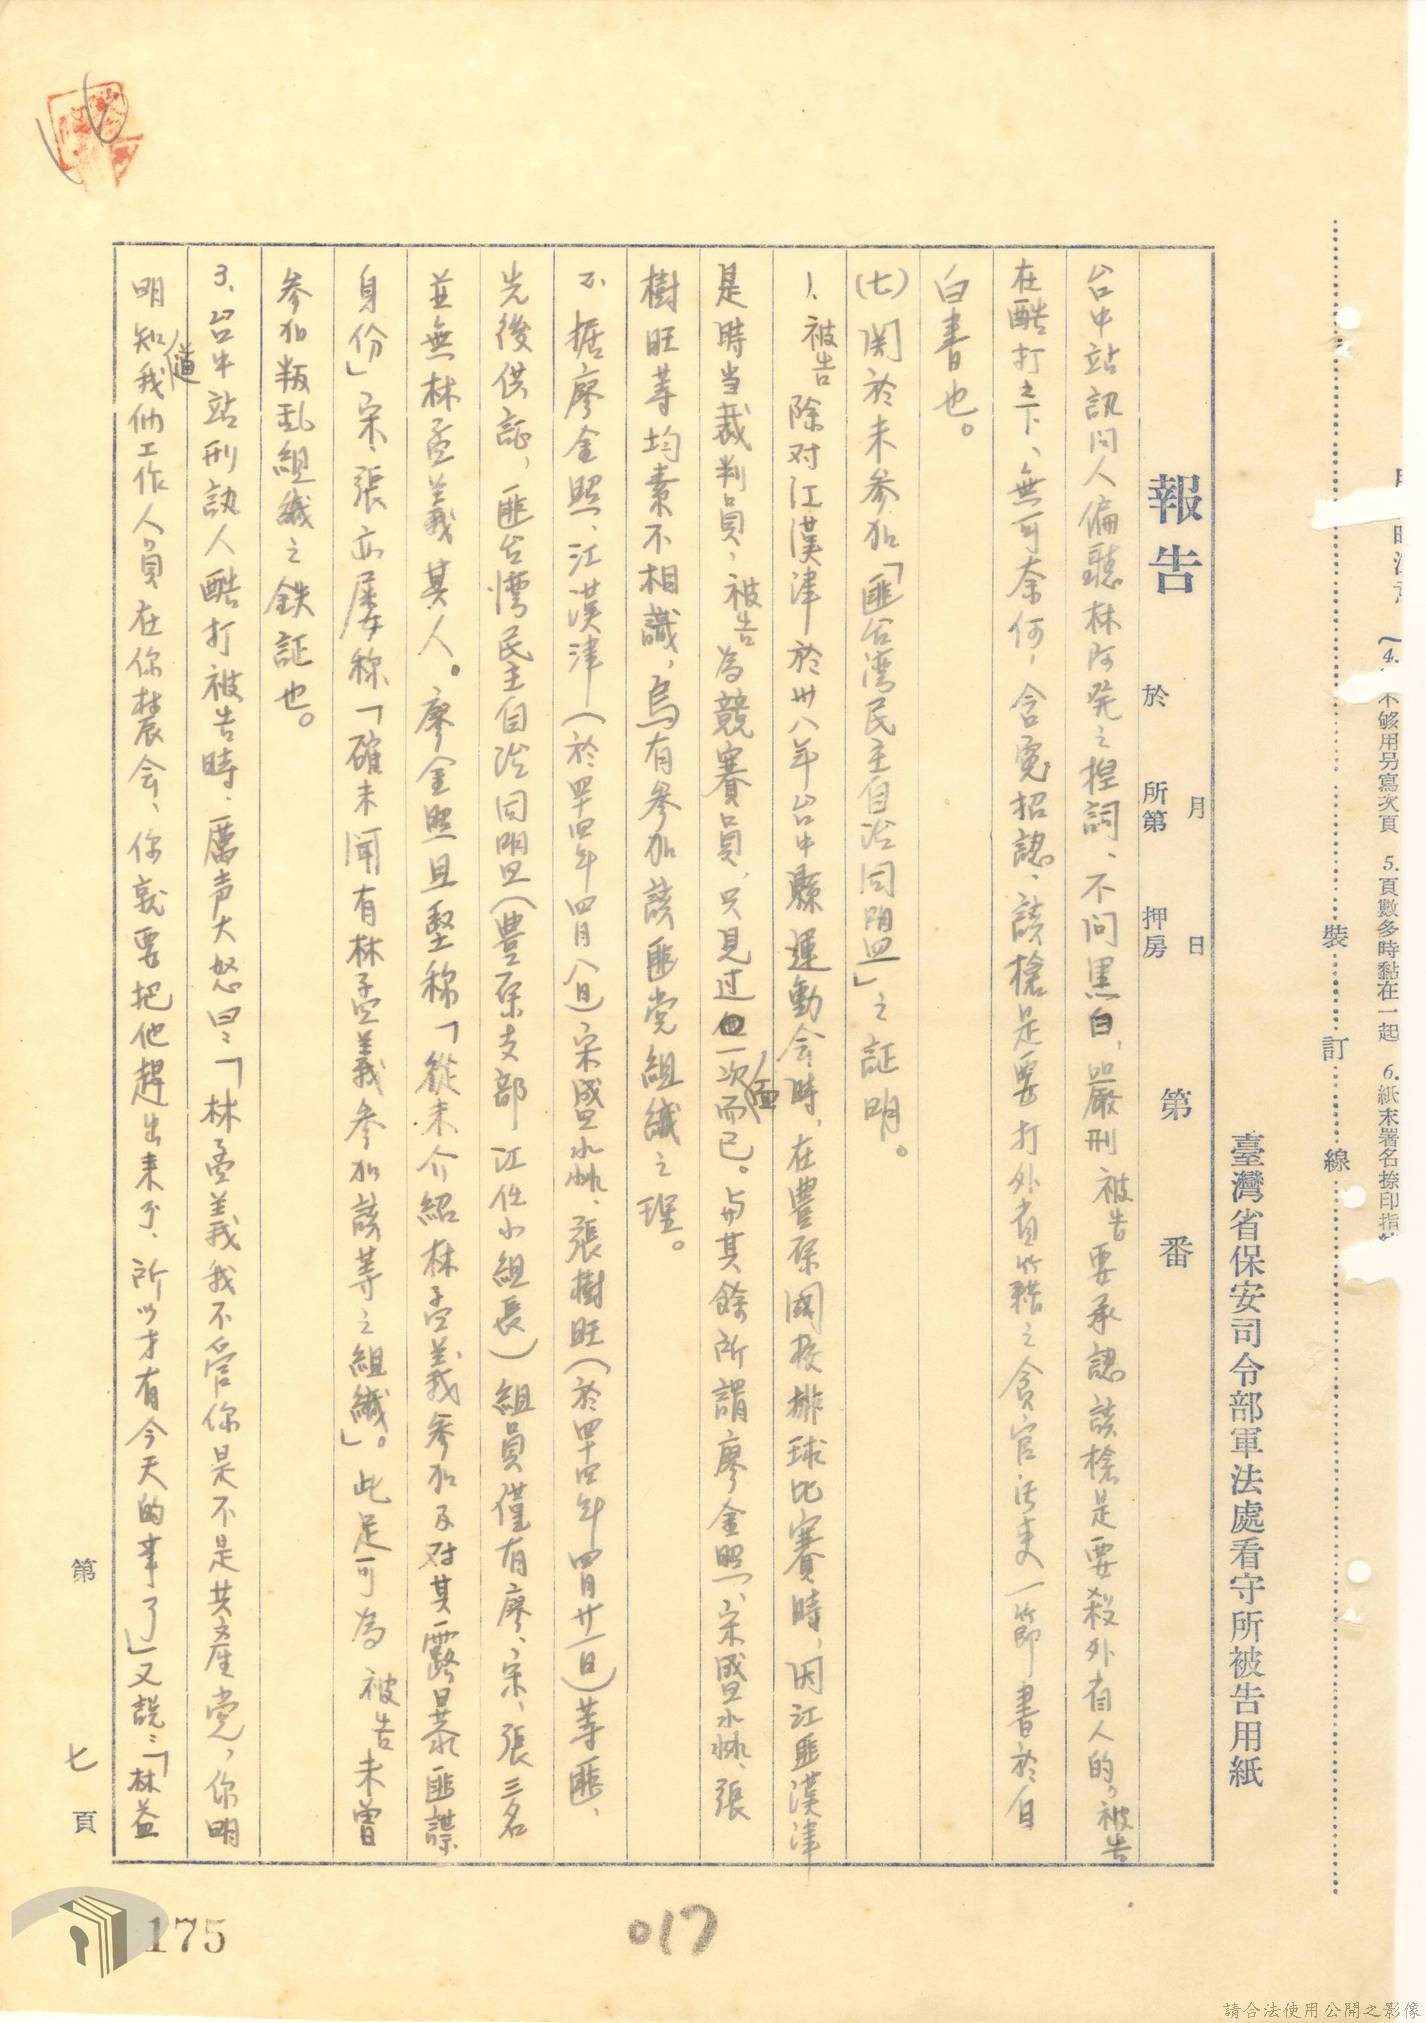 4.
不够用另寫次頁 5.頁數多時黏在一起 6.紙末署名捺印指
裝 訂 線
臺灣省保安司令部軍法處看守所被告用紙
報告 於 所第 押房 月 日 第 番
台中站訊問人偏聽林阿発之揑詞、不問黒白,嚴刑被告要承認該槍是要殺外省人的,被告
在酷打之下、無可奈何,含冤招認、該槍是要打外省籍之貪官污吏一節書於自
白書也。
(七)関於未參加「匪台湾民主自治同盟」之証明。
1、被告除对江漢津於卅八年台中縣運動会時,在豊原國校排球比賽時,因江匪漢津
是時当裁判員,被告為競賽員,只見过一次面而已。与其餘所謂廖金照、宋盛淼、張
樹旺等均素不相識,烏有參加該匪党組織之理。
2、据廖金照、江漢津(於四十四年四月八日)宋盛淼、張樹旺(於四十四年四月廿一日)等匪、
先後供証,匪台灣民主自治同盟(豊原支部江任小組長)組員僅有廖、宋、張三名
並無林孟義其人。廖金照且堅称「從未介紹林孟義參加及对其露暴匪諜
身份」宋、張亦屡称「確未聞有林孟義參加該等之組織」。此足可為被告未曾
參加叛乱組織之鉄証也。
3、台中站刑訊人酷打被告時、厲声大怒曰:「林孟義我不管你是不是共產党,你明
明知道我他工作人員在你農会、你就要把他趕出来了、所以才有今天的事了」又說:「林益
第 七 頁
175
017
請合法使用公開之影像